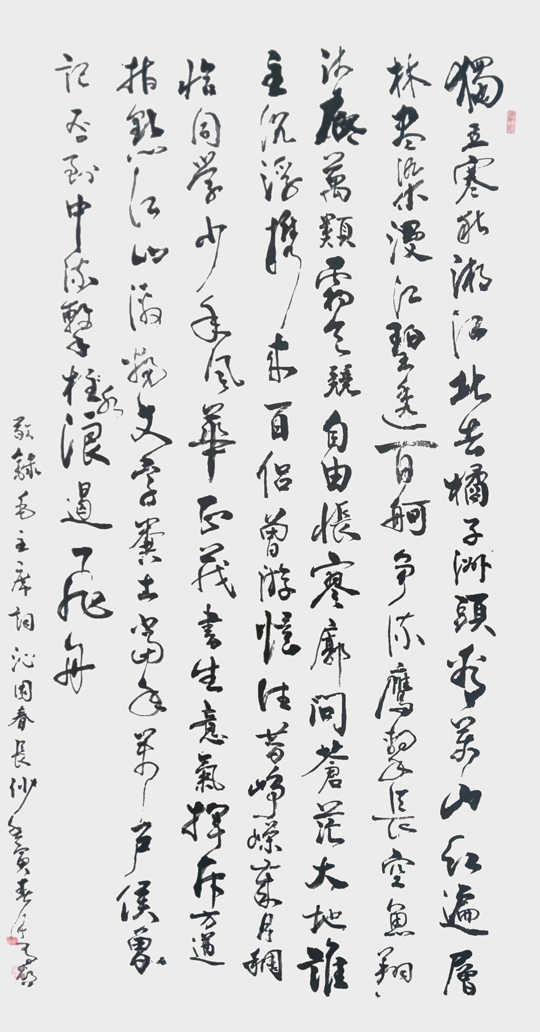 獨立寒秋湘江北去橘子洲頭看萬山紅遍層
林盡染漫江碧透百舸爭流鷹擊長空魚翔
淺底萬類霜天競自由悵寥廓問蒼茫大地誰
主沉浮攜來百侶曾游憶往昔崢嶸歲月稠
恰同學少年風華正茂書生意氣揮斥方遒
指點江山激揚文字糞土當年萬戶侯曾
記否到中流擊水浪遏飛舟
敬錄毛主席詞沁園春長沙寅春